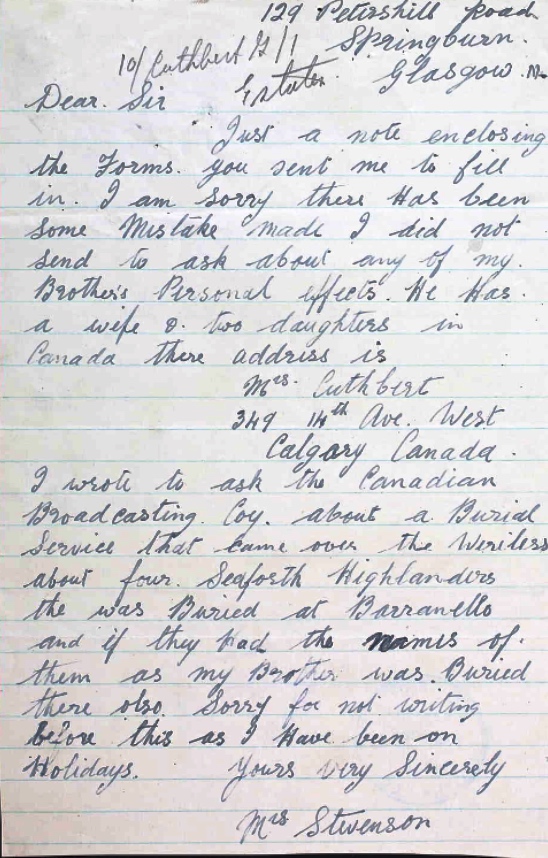 129 Petershill Road
Springburn.
10/Cuthbert G/1
Estates.
Glasgow. N.
Dear. Sir
Just a note enclosing
the Forms. you sent me to fill
in. I am sorry there Has been
some Mistake made I did not
send to ask about any of my.
Brother's Personal effects. He Has.
a wife & two daughters in
Canada there address is
Mrs. Cuthbert
349 14th Ave. West
Calgary Canada.
I wrote to ask the Canadian
Broadcasting. Coy. about a Burial
Service that came over the Wireless
about four. Seaforth Highlanders
the was Buried at Barranello
and if they Had the names of.
them as my Brother was. Buried
there also. Sorry for not writing
before this as I Have been on
Holidays. Yours very Sincerely
Mrs Stevenson